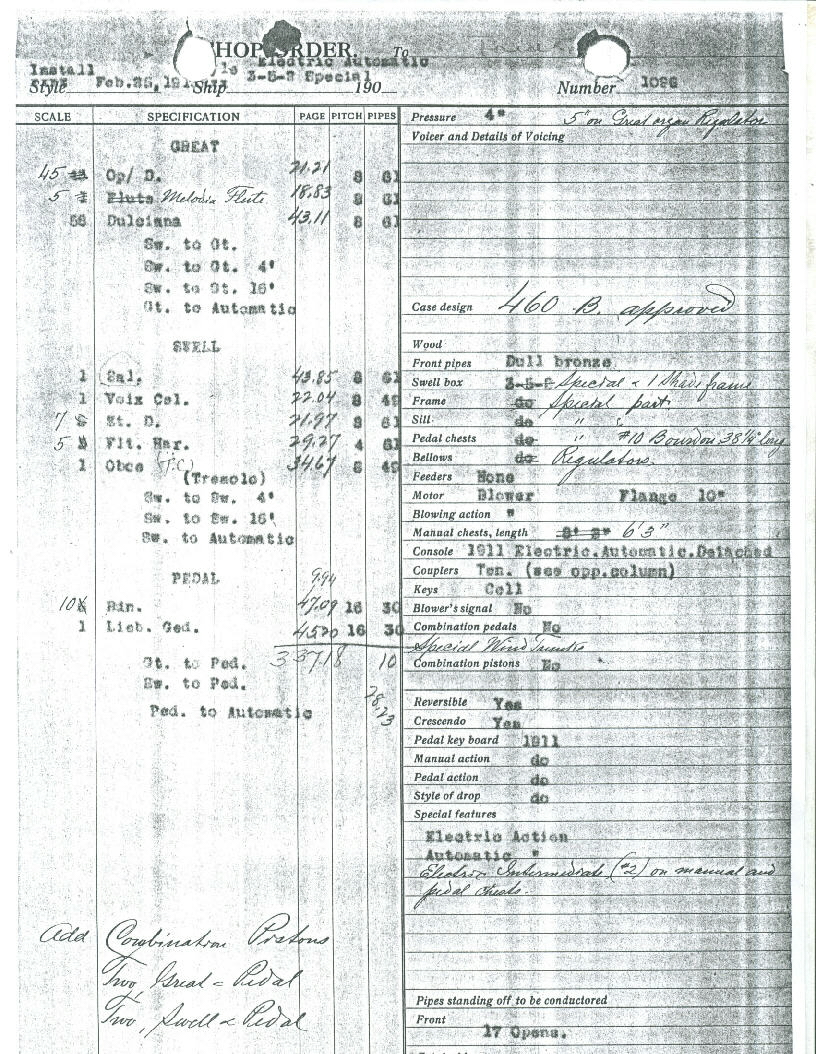 SHOP ORDER. To
Install Electric Automatic
Style Feb.25, Ship 3-5-8 Special 190 Number 1096
SCALE SPECIFICATION PAGE PITCH PIPES
GREAT
45 Op/ D. 21.21 8 61
5 Flute Melodia Flute 18.83 8 61
56 Dulciana 43.11 8 61
Sw. to Gt.
Sw. to Gt. 4'
Sw. to Gt. 16'
Gt. to Automatic
SWELL
1 Sal. 43.85 8 61
1 Voix Cel. 22.04 8 49
7 St. D. 21.97 8 61
5 Flt. Har. 29.27 4 61
1 Oboe (T.C) 34.67 8 49
(Tremolo)
Sw. to Sw. 4'
Sw. to Sw. 16'
Sw. to Automatic
PEDAL 9.94
10 Bin. 47.09 16 30
1 Lieb. Ged. 45.20 16 30
Gt. to Ped. 337.18 10
Sw. to Ped.
28.23
Ped. to Automatic
Add Combination Pistons
Two, Great & Pedal
Two, Swell & Pedal
Pressure 4" 5" on Great organ Regulator
Voicer and Details of Voicing
Case design 460 B. approved
Wood
Front pipes Dull bronze
Swell box 3-5-8 Special & 1 Shade frame
Frame do Special part.
Sill do " "
Pedal chests do " #10 Bourdon 38¼" long
Bellows do Regulators.
Feeders None
Motor Blower Flange 10"
Blowing action "
Manual chests, length 8' 8" 6'3"
Console 1911 Electric.Automatic.Detached
Couplers Ten. (see opp.column)
Keys Cell
Blower's signal No
Combination pedals No
Special Wind Trunks
Combination pistons No
Reversible Yes
Crescendo Yes
Pedal key board 1911
Manual action do
Pedal action do
Style of drop do
Special features
Electric Action
Automatic "
Electric Intermediate (#2) on manual and
pedal chests.
Pipes standing off to be conductored
Front
17 Opens.